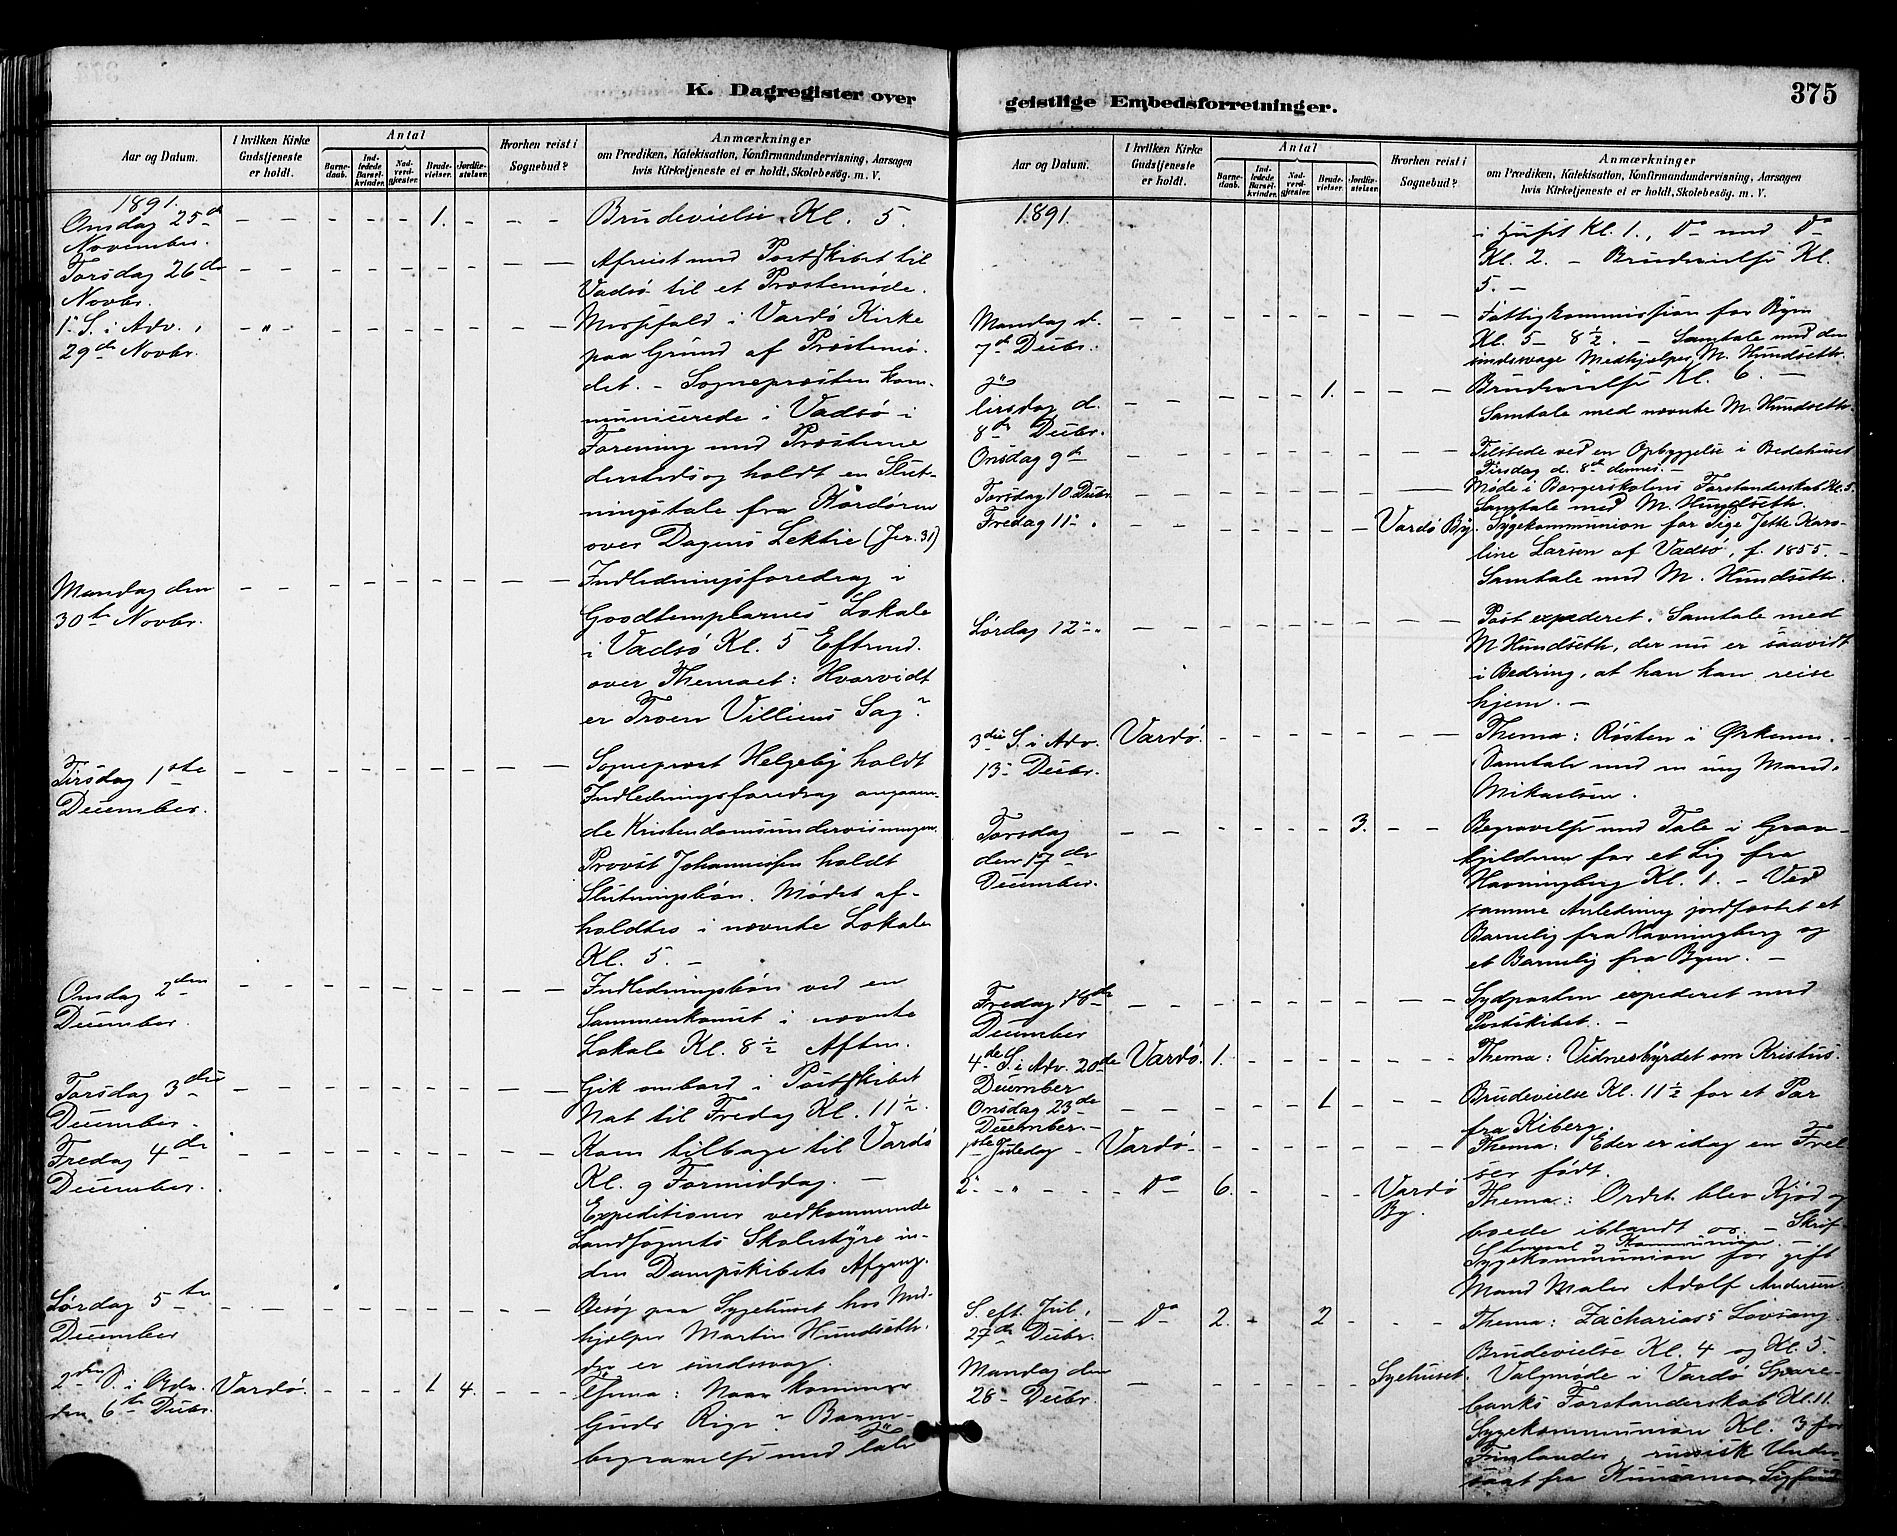 K. Dagregister over
Aar og Datum.
I hvilken Kirke Gudstjeneste er holdt.
Antal
Barnedaab.
Indledede Barselkvinder.
Nadverdgjester.
Brudevielser.
Jordfæstelser.
Hvorhen reist i Sognebud?
Anmærkninger
om Prædiken, Katekisation, Konfirmandundervisning, Aarsagen
hvis Kirketjeneste ei er holdt, Skolebesög. m. V.
1891.
Onsdag 25de - - - - - - 1. - - - Brudevielse Kl. 5.
November.
Torsdag 26de - - - - - - - - - - Afreist med Postskibet til
Novbr. Vadsø til et Præstemøde.
1ste S. i Adv., - " - - - - - - - - - Messefald i Vardø Kirke
29de Novbr. paa Grund af Præstemø-
det. - Sognepræsten kom-
municerede i Vadsø i
Forening med Præsterne
dersteds og holdt en Slut-
ningstale fra Kordøren
over Dagens Lektie (Jer. 31)
Mandag den - - - - - - - - - Indledningsforedrag i
30te Novbr. Goodtemplarnes Lokale
i Vadsø Kl. 5 Eftermd.
over Themaet: Hvorvidt
er Troen Villiens Sag?
Tirsdag 1ste - - - - - - - - - Sogneprest Helgeby holdt
December. Indledningsforedrag angaaen-
de Kristendomsundervisningen.
Provst Johannessen holdt
Slutningsbøn. Mødet af-
holdtes i nævnte Lokale
Kl. 5. -
Onsdag 2den - - - - - - - - - Indledningsbøn ved en
December. Sammenkomst i nævnte
Lokale Kl. 8 1/2 Aften.
Torsdag 3die - - - - - - - - - Gik ombord i Postskibet
December. Nat til Fredag Kl. 11 1/2.
Fredag 4de - - - - - - - - - Kom tilbage til Vardø
December. Kl. 9 Formiddag. -
Expeditioner vedkommende
Landsognets Skolestyre in-
den Dampskibets Afgang.
Lørdag 5te - - - - - - - - - Besøg paa Sygehuset hos Med-
December hjælper Martin Hundseth,
der er sindssvag.
2den S. i Adv. Vardø. - - - 1 4. - - Thema: Naar kommer
den 6te Decbr. Guds Rige? Barne-
begravelse med Tale
geistlige Embedsforretninger.
375
Aar og Datum.
I hvilken Kirke Gudstjeneste er holdt.
Antal
Barnedaab.
Indledede Barselkvinder.
Nadverdgjester.
Brudevielser.
Jordfæstelser.
Hvorhen reist i Sognebud?
Anmærkninger
om Prædiken, Katekisation, Konfirmandundervisning, Aarsagen
hvis Kirketjeneste ei er holdt, Skolebesög, m. V.
1891. i Huset Kl. 1., do med do
Kl. 2. - Brudevielse Kl.
5. -
Mandag d. - - - - - - - - - Fattigkommission for Byen
7de Decbr. Kl. 5 - 8 1/2. - Samtale med den
sindssvage Medhjælper M. Hundseth.
Tirsdag d. - - - - - 1. - - - Brudevielse Kl. 6. -
8de Decbr. Samtale med nævnte M. Hundseth.
Onsdag 9de - - - - - - - - - Tilstede ved en Opbyggelse i Bedehuset
Tirsdag d. 8de dennes. -
Torsdag 10 Decbr. - - - - - - - Møde i Borgerskolens Forstanderskab Kl. 5.
Samtale med M. Hundseth.
Fredag 11te " - - - - - - - Vardø By. Sygekommunion for Pige Jette Karo-
line Larsen af Vadsø, f. 1855. -
Samtale med M. Hundseth.
Lørdag 12te " - - - - - - - - - Post expederet. Samtale med
M. Hundseth, der nu er saavidt
i Bedring, at han kan reise
hjem. -
3die S. i Adv. Vardø. - - - - - - - Thema: Røsten i Ørkenen. -
13de Decbr. Samtale med en ung Mand,
Mikaelsen.
Torsdag - - - - - - 3. - - Begravelse med Tale i Grav-
den 17de kjelderen for et Lig fra
December. Havningberg Kl. 1. - Ved
samme Anledning jordfæstet et
Barnelig fra Havningberg og
et Barnelig fra Byen. -
Fredag 18de - - - - - - - - - Sydposten expederet med
December Postskibet. -
4de S. i Adv. 20de Vardø. 1. - - - - - - Thema: Vidnesbyrdet om Kristus.
December
Onsdag 23de - - - - - 1 - - - Brudevielse Kl. 11 1/2 for et Par
December. - fra Kiberg.
1ste Juledag - Vardø. - - - - - - - Thema: Eder er idag en Frel-
ser født.
2" " - - do 6. - - - Vardø By. Thema: Ordet blev Kjød og
boede iblandt os. - Skrif-
temaal & Kommunion. -
Sygekommunion for gift
Mand Maler Adolf Andersen.
S. eft. Jul, - do - 2. - 2 - - - Thema: Zacharias's Lovsang.
27de Decbr. Brudevielse Kl. 4 og Kl. 5.
Mandag den - - - - - - - Sygehuset. Valgmøde i Vardø Spare-
28de Decbr. banks Forstanderskab Kl. 11.
Sygekommunion Kl. 3 for
Finlænder russisk Under-
saat fra Kuusamo, Sigfrid